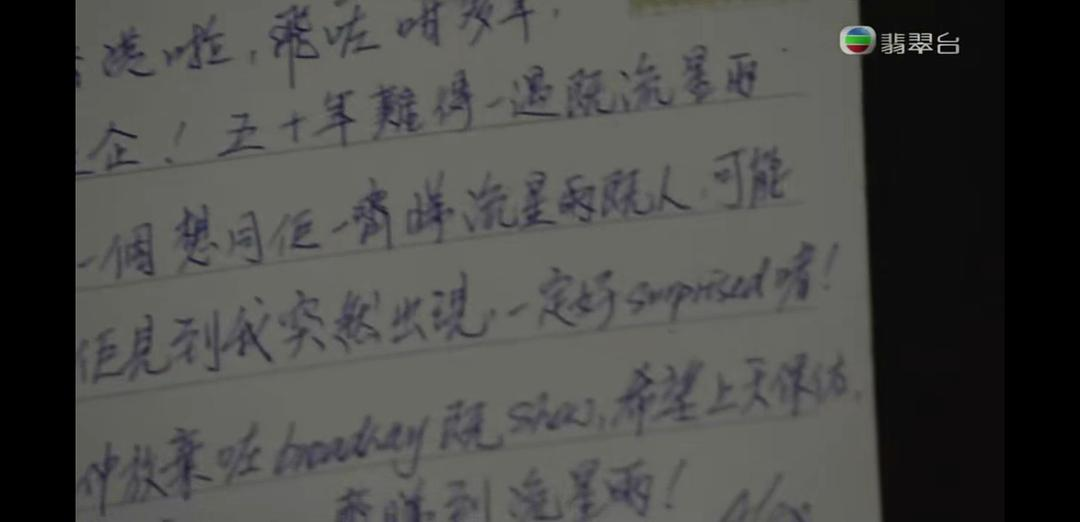 翡翠台
港啦，飛咗咁多年，
企！五十年難得一遇既流星雨
一個想同佢一齊睇流星雨既人，可能
佢見到我突然出現，一定好surprised啫！
仲放棄咗broadway既show，希望上天保佑，
睇到流星雨！